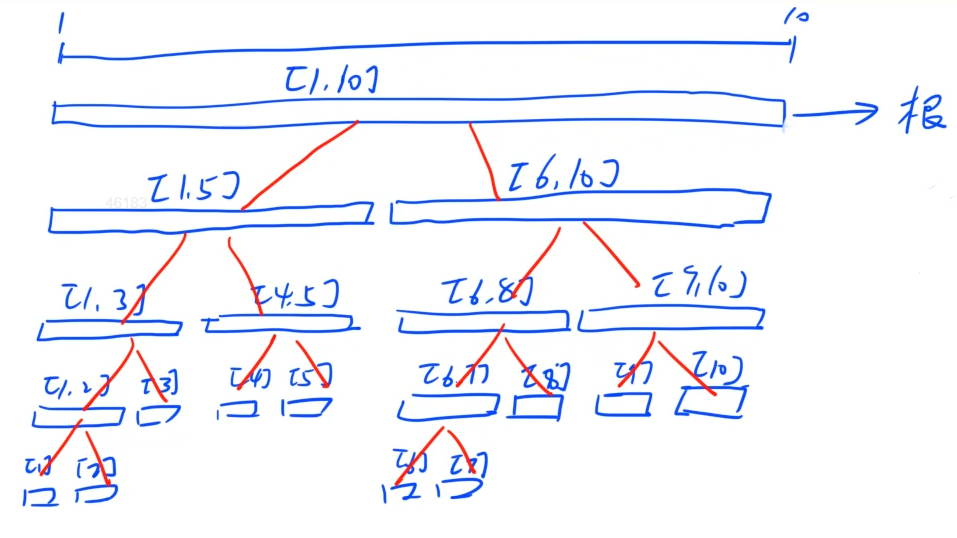 1 10
[1,10]
根
[1,5] [6,10]
46183
[1,3] [4,5] [6,8] [9,10]
[1,2] [3] [4] [5] [6,7] [8] [9] [10]
[1] [2] [6] [7]